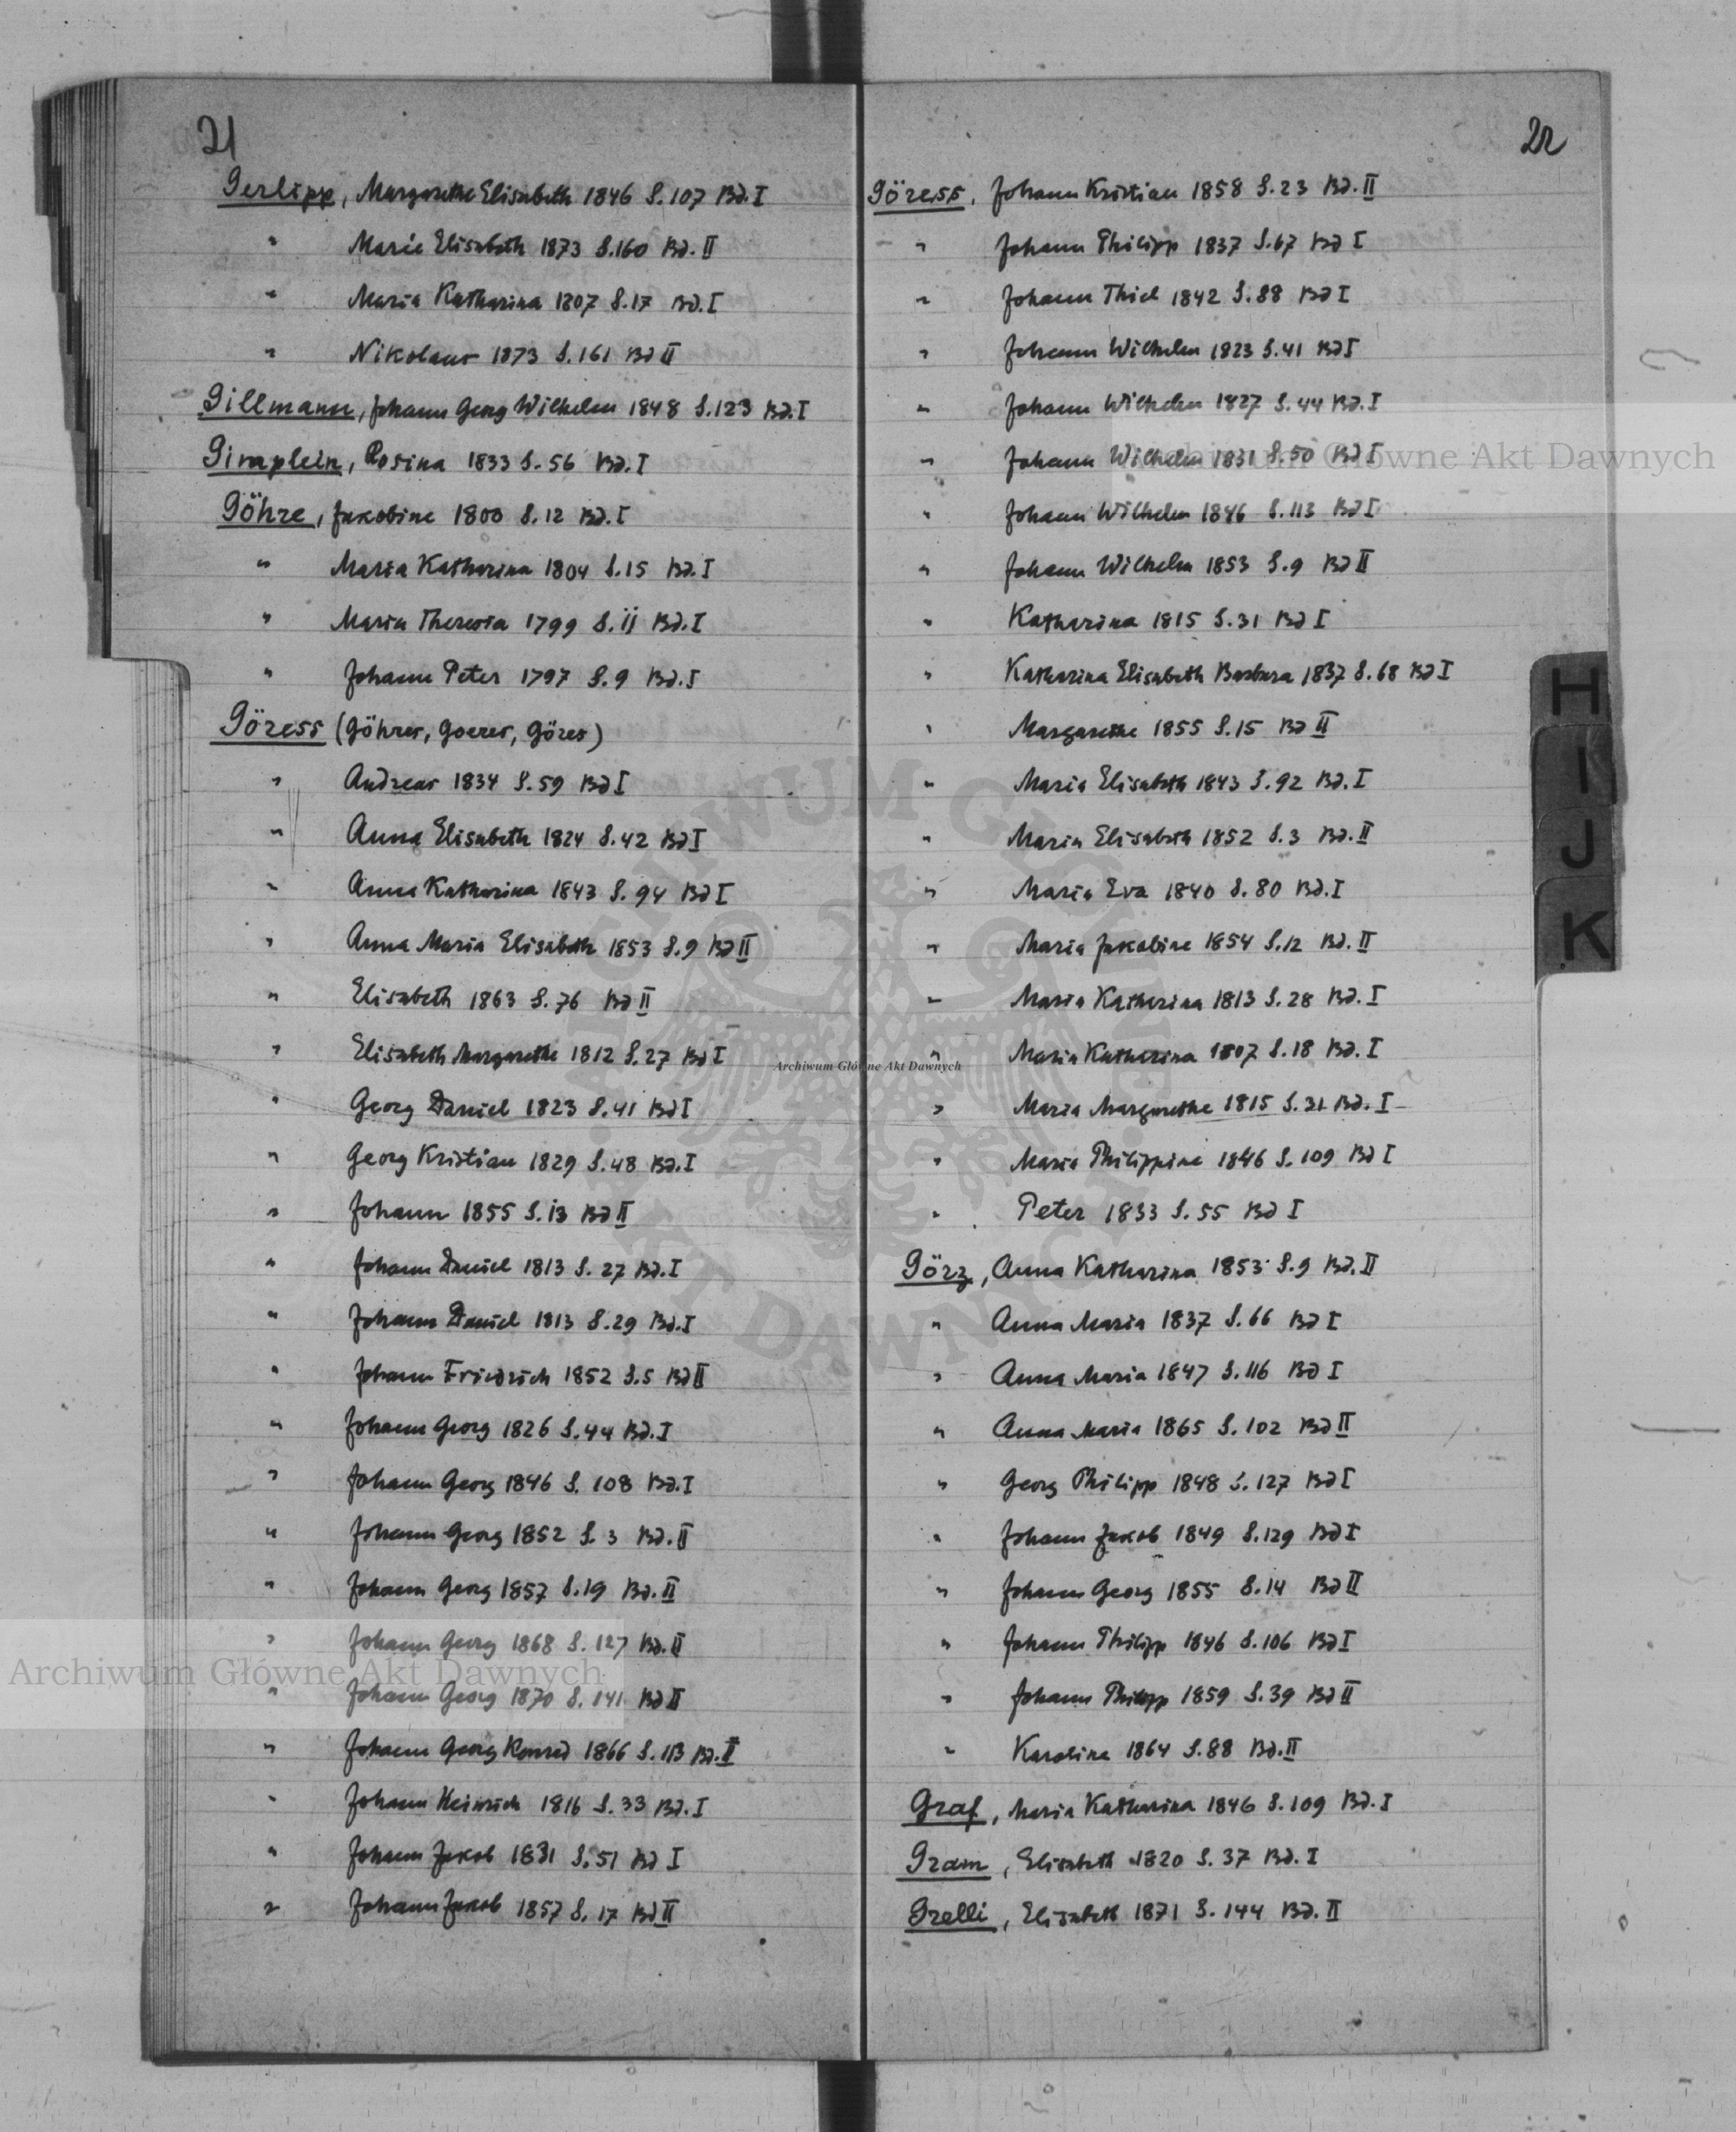 21
Gerlipp, Margarethe Elisabeth 1846 S. 107 Bd. I
" Marie Elisabeth 1873 S. 160 Bd. II
" Maria Katharina 1807 S. 17 Bd. I
" Nikolaus 1873 S. 161 Bd II
Gillmann, Johann Georg Wilhelm 1848 S. 123 Bd. I
Gimplein, Rosina 1833 S. 56 Bd. I
Göhre, Jakobine 1800 S. 12 Bd. I
" Maria Katharina 1804 S. 15 Bd. I
" Maria Theresia 1799 S. 11 Bd. I
" Johann Peter 1797 S. 9 Bd. I
Göress (Göhres, Goeres, Göres)
" Andreas 1834 S. 59 Bd I
" Anna Elisabeth 1824 S. 42 Bd I
" Anna Katharina 1843 S. 94 Bd I
" Anna Maria Elisabeth 1853 S. 9 Bd II
" Elisabeth 1863 S. 76 Bd II
" Elisabeth Margarethe 1812 S. 27 Bd I
" Georg Daniel 1823 S. 41 Bd I
" Georg Kristian 1829 S. 48 Bd. I
" Johann 1855 S. 13 Bd II
" Johann Daniel 1813 S. 27 Bd. I
" Johann Daniel 1813 S. 29 Bd. I
" Johann Friedrich 1852 S. 5 Bd II
" Johann Georg 1826 S. 44 Bd. I
" Johann Georg 1846 S. 108 Bd. I
" Johann Georg 1852 S. 3 Bd. II
" Johann Georg 1857 S. 19 Bd. II
" Johann Georg 1868 S. 127 Bd. II
" Johann Georg 1870 S. 141 Bd II
" Johann Georg Konrad 1866 S. 113 Bd. II
" Johann Heinrich 1816 S. 33 Bd. I
" Johann Jakob 1831 S. 51 Bd I
" Johann Jakob 1857 S. 17 Bd II
22
Göress, Johann Kristian 1858 S. 23 Bd. II
" Johann Philipp 1837 S. 67 Bd I
" Johann Thiel 1842 S. 88 Bd I
" Johann Wilhelm 1823 S. 41 Bd I
" Johann Wilhelm 1827 S. 44 Bd. I
" Johann Wilhelm 1831 S. 50 Bd I
" Johann Wilhelm 1846 S. 113 Bd I
" Johann Wilhelm 1853 S. 9 Bd II
" Katharina 1815 S. 31 Bd I
" Katharina Elisabeth Barbara 1837 S. 68 Bd I
" Margarethe 1855 S. 15 Bd II
" Maria Elisabeth 1843 S. 92 Bd. I
" Maria Elisabeth 1852 S. 3 Bd. II
" Maria Eva 1840 S. 80 Bd. I
" Maria Jakobine 1854 S. 12 Bd. II
" Maria Katharina 1813 S. 28 Bd. I
" Maria Katharina 1807 S. 18 Bd. I
" Maria Margarethe 1815 S. 31 Bd. I
" Maria Philippine 1846 S. 109 Bd I
" Peter 1833 S. 55 Bd I
Görz, Anna Katharina 1853 S. 9 Bd. II
" Anna Maria 1837 S. 66 Bd I
" Anna Maria 1847 S. 116 Bd I
" Anna Maria 1865 S. 102 Bd II
" Georg Philipp 1848 S. 127 Bd I
" Johann Jakob 1849 S. 129 Bd I
" Johann Georg 1855 S. 14 Bd II
" Johann Philipp 1846 S. 106 Bd I
" Johann Philipp 1859 S. 39 Bd II
" Karoline 1864 S. 88 Bd. II
Graf, Maria Katharina 1846 S. 109 Bd. I
Gram, Elisabeth 1820 S. 37 Bd. I
Grelli, Elisabeth 1871 S. 144 Bd. II
H
I
J
K
Archiwum Główne Akt Dawnych
Archiwum Główne Akt Dawnych
Archiwum Główne Akt Dawnych
ARCHIWUM GŁÓWNE AKT DAWNYCH